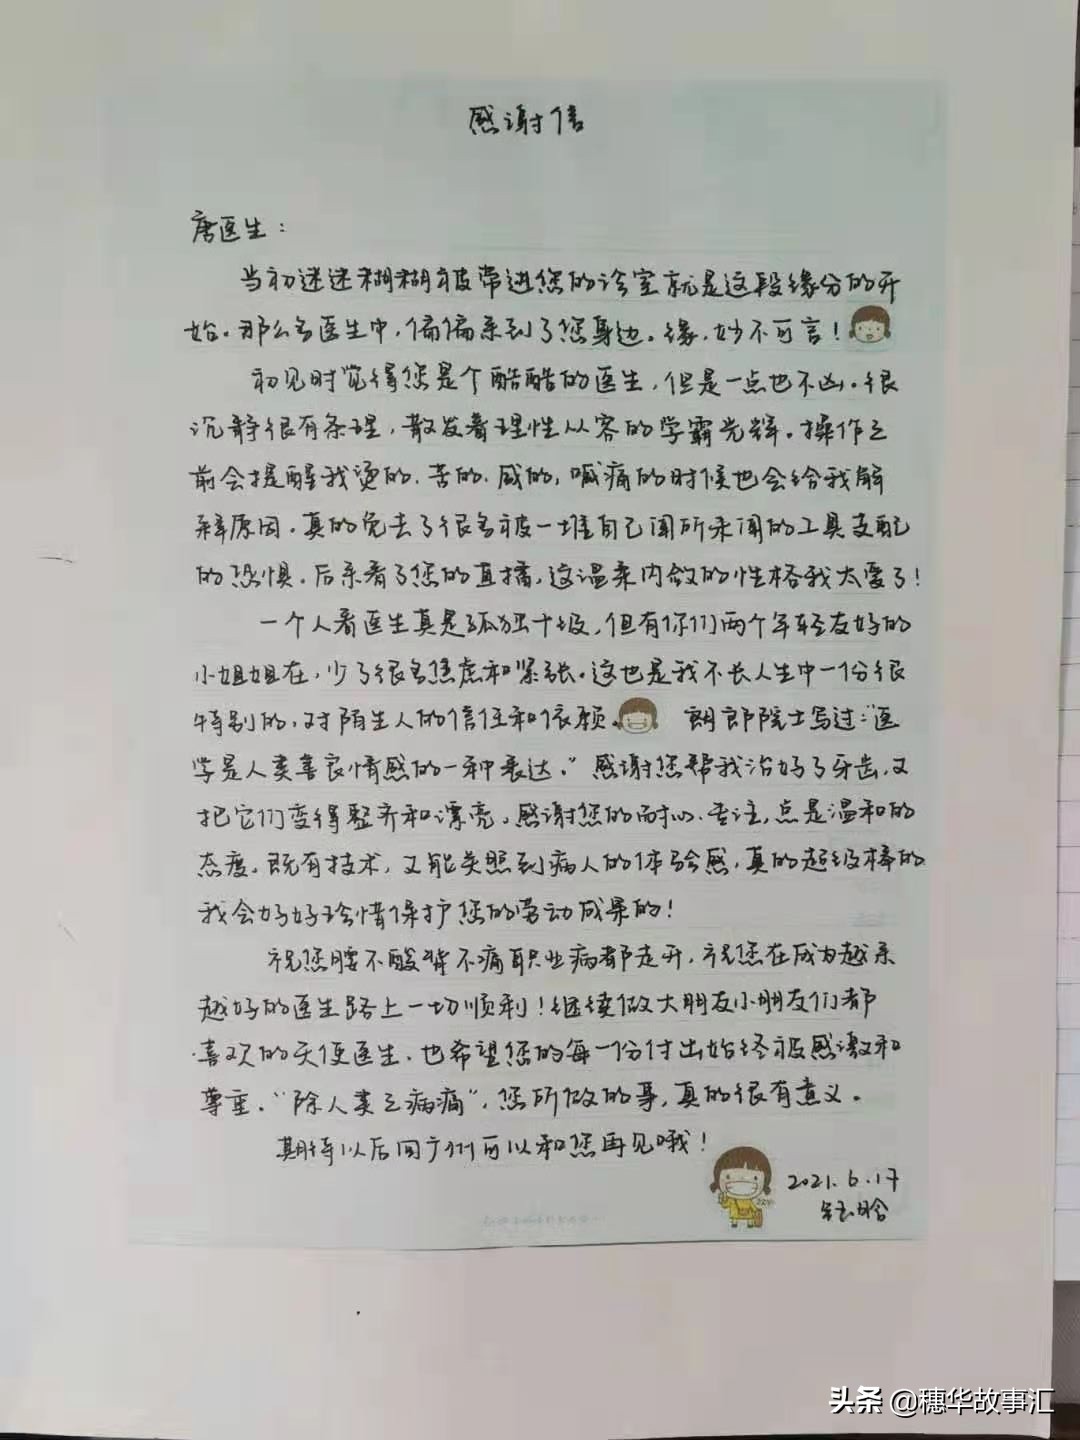 感谢信
唐医生：
当初迷迷糊糊被带进您的诊室就是这段缘分的开
始。那么多医生中，偏偏来到了您身边。缘，妙不可言！
初见时觉得您是个酷酷的医生，但是一点也不凶。很
沉静很有条理，散发着理性从容的学霸光辉。操作之
前会提醒我烫的、苦的、咸的，喊痛的时候也会给我解
释原因。真的免去了很多被一堆自己闻所未闻的工具支配
的恐惧。后来看了您的直播，这温柔内敛的性格我太爱了！
一个人看医生真是孤独十级，但有你们两个年轻友好的
小姐姐在，少了很多焦虑和紧张。这也是我不长人生中一份很
特别的，对陌生人的信任和依赖。郎景和院士写过："医
学是人类善良情感的一种表达。"感谢您帮我治好了牙齿，又
把它们变得整齐和漂亮。感谢您的耐心、专注，点是温和的
态度。既有技术，又能关照到病人的体验感，真的超级棒的
我会好好珍惜保护您的劳动成果的！
祝您腰不酸背不痛职业病都走开，祝您在成为越来
越好的医生路上一切顺利！继续做大朋友小朋友们都
喜欢的天使医生。也希望您的每一份付出始终被感激和
尊重。"除人类之病痛"，您所做的事，真的很有意义。
期待以后回广州可以和您再见哦！
2021.6.17
头条 @穗华故事汇